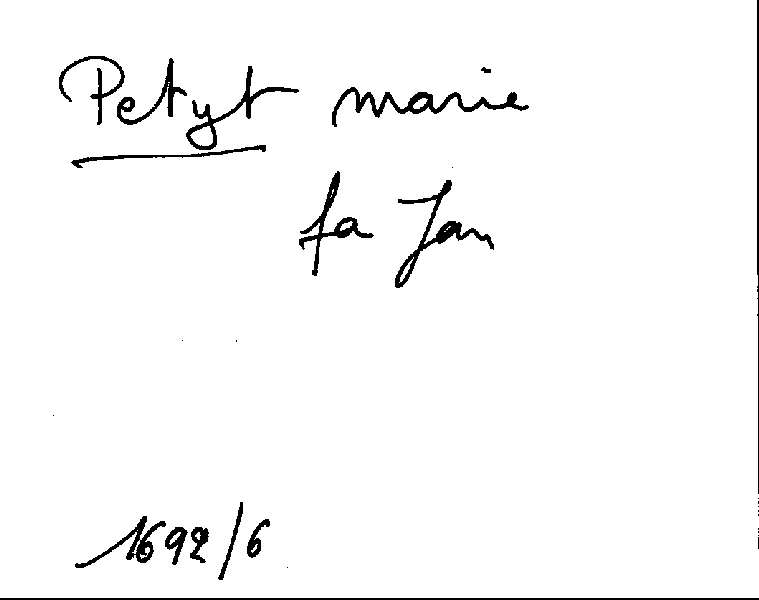 Petyt marie
fa Jan
1692/6